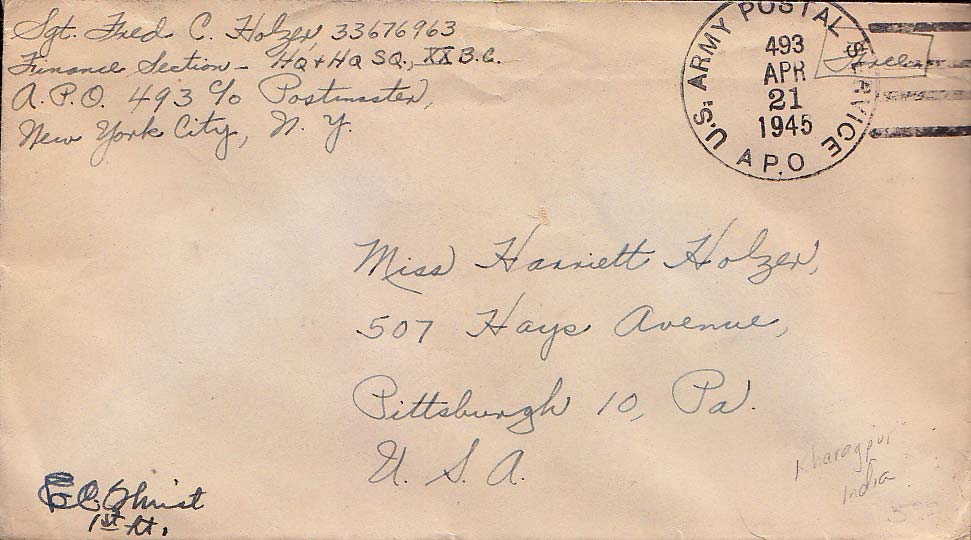 Sgt. Fred C. Holzer 33676963
Finance Section - HQ + HQ SQ., XX B.C.
A.P.O. 493 c/o Postmaster,
New York City, N. Y.
U.S. ARMY POSTAL SERVICE
493
APR
21
1945
A.P.O
Free
Miss Harriett Holzer,
507 Hays Avenue,
Pittsburgh 10, Pa.
U. S. A.
Kharagpur
India
1st Lt.